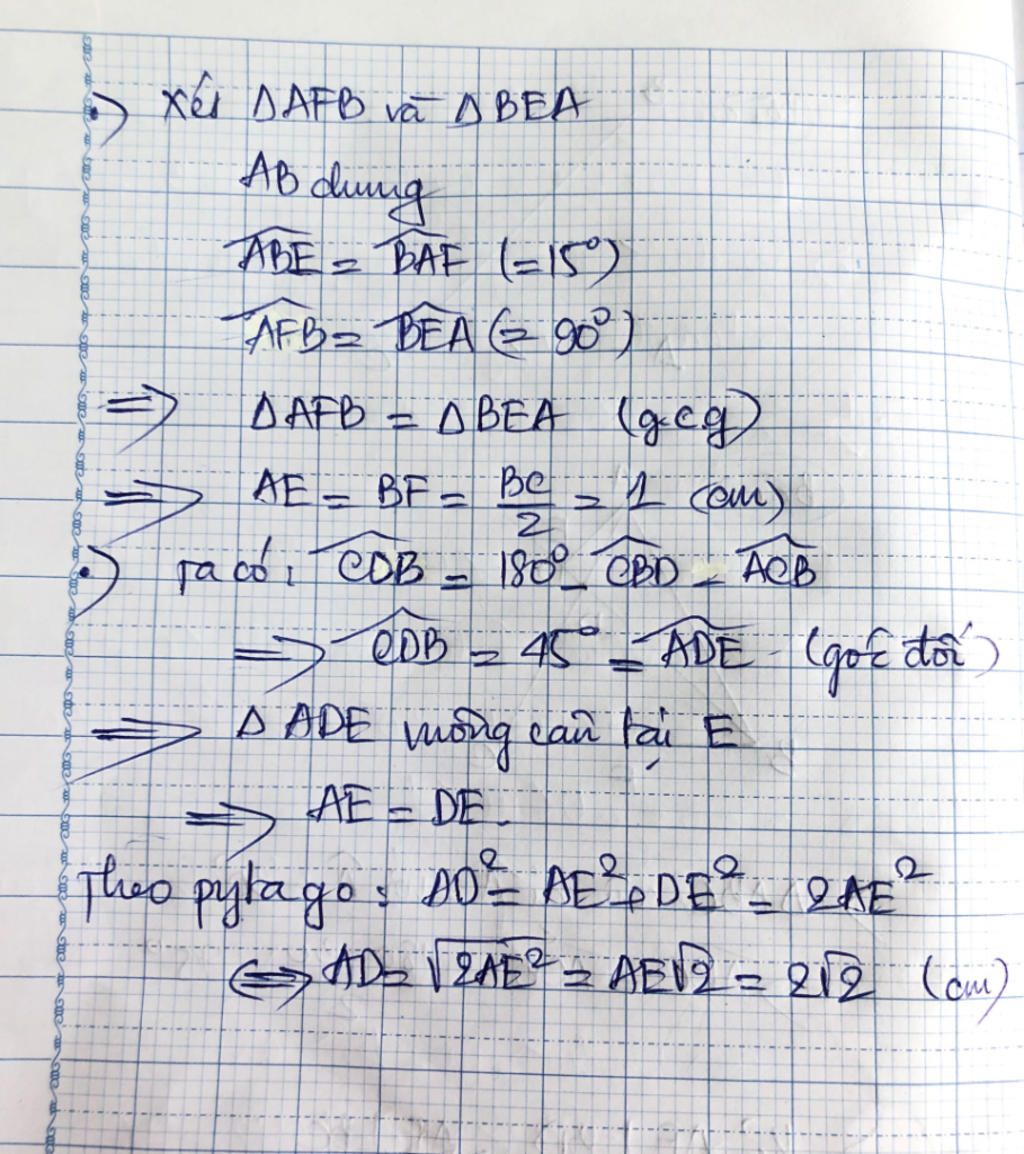 •) Xét ΔAFB và ΔBEA
AB chung
$\widehat{ABE} = \widehat{BAF}$ (=15°)
$\widehat{AFB} = \widehat{BEA}$ (= 90°)
=> ΔAFB = ΔBEA (g.c.g)
=> AE = BF = $\frac{BC}{2}$ = 1 (cm)
•) Ta có: $\widehat{CDB}$ = 180° - $\widehat{CBD}$ - $\widehat{ACB}$
=> $\widehat{CDB}$ = 45° = $\widehat{ADE}$ (góc đối)
=> Δ ADE vuông cân tại E
=> AE = DE.
Theo pytago: AD² = AE² + DE² = 2AE²
<=> AD = $\sqrt{2AE^2}$ = AE√2 = 2√2 (cm)